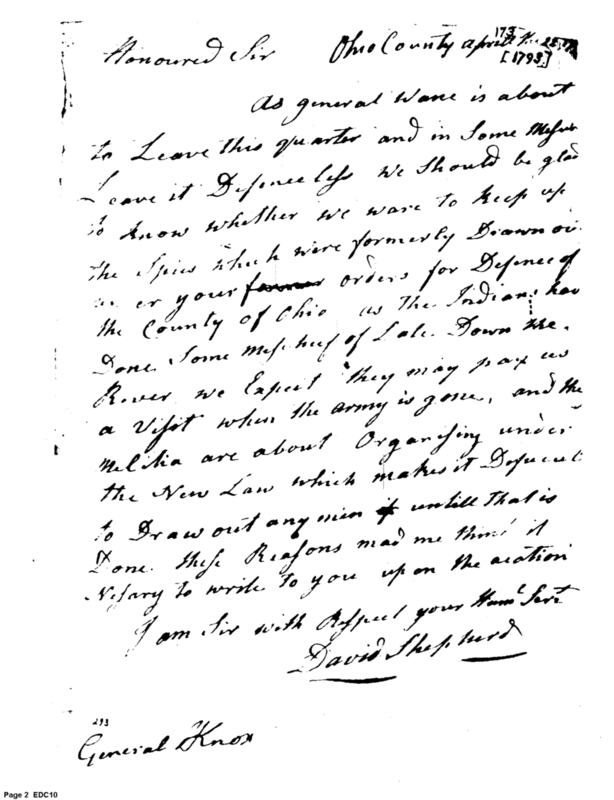 173
Honoured Sir Ohio County april the 25th
[1793]
As general Wane is about
to Leave this quarter and in Some Mesur
Leave it Defenceless we Should be glad
to know whether we ware to keep up
the Spies which were formerly Drawn ou
un er your former orders for Defence of
the County of Ohio as the Indians hav
Done Some Mischief of Late Down the
River we Expect they may pay us
a Visit when the army is gone, and the
Melitia are about Organising under
the New Law which makes it Deficult
to Draw out any men if untill that is
Done these Reasons mad me think it
Nesary to write to you upon the acation
I am Sir with Respect your Huml Servt
David Shepherd
293
General Knox
Page 2 EDC10